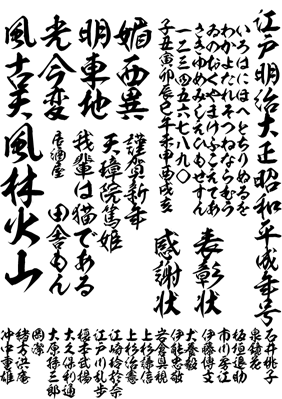 江戸明治大正昭和平成年号
いろはにほへとちりぬるを
わかよたれそつねならむう
ゐのおくやまけふこえてあ
さきゆめみしゑひもせすん
一二三四五六七八九〇
子丑寅卯辰巳午未申酉戌亥
表彰状
感謝状
媚西異
明東地
老今変
風古天
謹賀新年
天璋院篤姫
我輩は猫である
居酒屋 田舎もん
風林火山
石井桃子
泉鏡花
板垣退助
市川房江
伊藤博文
伊能忠敬
犬養毅
岩倉具視
上杉謙信
上杉治憲
江崎玲於奈
江戸川乱歩
榎本武揚
大久保利通
大原孫三郎
岡潔
緒方洪庵
沖中重雄